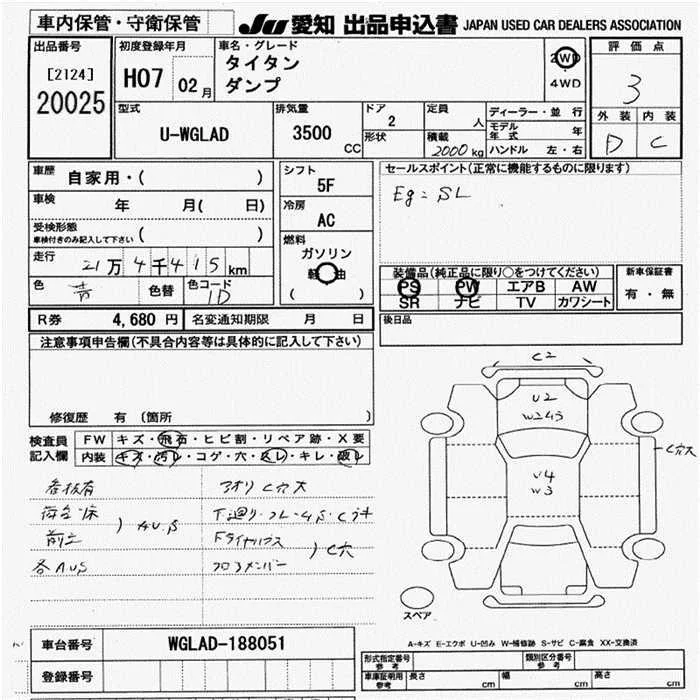 車内保管・守衛保管 JU 愛知 出品申込書 JAPAN USED CAR DEALERS ASSOCIATION
出品番号
[2124]
20025
初度登録年月
H07 02月
車名・グレード
タイタン
ダンプ
2WD
4WD
評価点
3
外装 内装
D C
型式
U-WGLAD
排気量
3500 CC
ドア
2
形状
定員 人
積載 2000 kg
ディーラー・並行
モデル年式 年
ハンドル 左・右
車歴
自家用・( )
車検 年 月( 日)
受検形態
車検付きのみ記入して下さい ( )
走行 21万4千415km
色 青 色替 色コード 1D
シフト
5F
冷房
AC
燃料
ガソリン
軽油
( )
セールスポイント(正常に機能するものに限ります)
Eg=SL
装備品(純正品に限り○をつけてください)
PS PW エアB AW
SR ナビ TV カワシート
新車保証書
有・無
R券 4,680円 名変通知期限 月 日
後日品
注意事項申告欄(不具合内容等は具体的に記入して下さい)
修復歴 有(箇所 )
検査員記入欄
FW キズ・飛石・ヒビ割・リペア跡・X要
内装 キズ・汚レ・コゲ・穴・スレ・キレ・破レ
C2
U2
W2
U4
W3
C穴大
アオリC穴大
荷台床
各A.U.S
C穴
スペア
A-キズ E-エクボ U-凹み W-補修跡 S-サビ C-腐食 XX-交換済
車台番号 WGLAD-188051
登録番号
形式指定番号 参考
類別区分番号 参考
車庫証明用参考 長さ cm 幅 cm 高さ cm